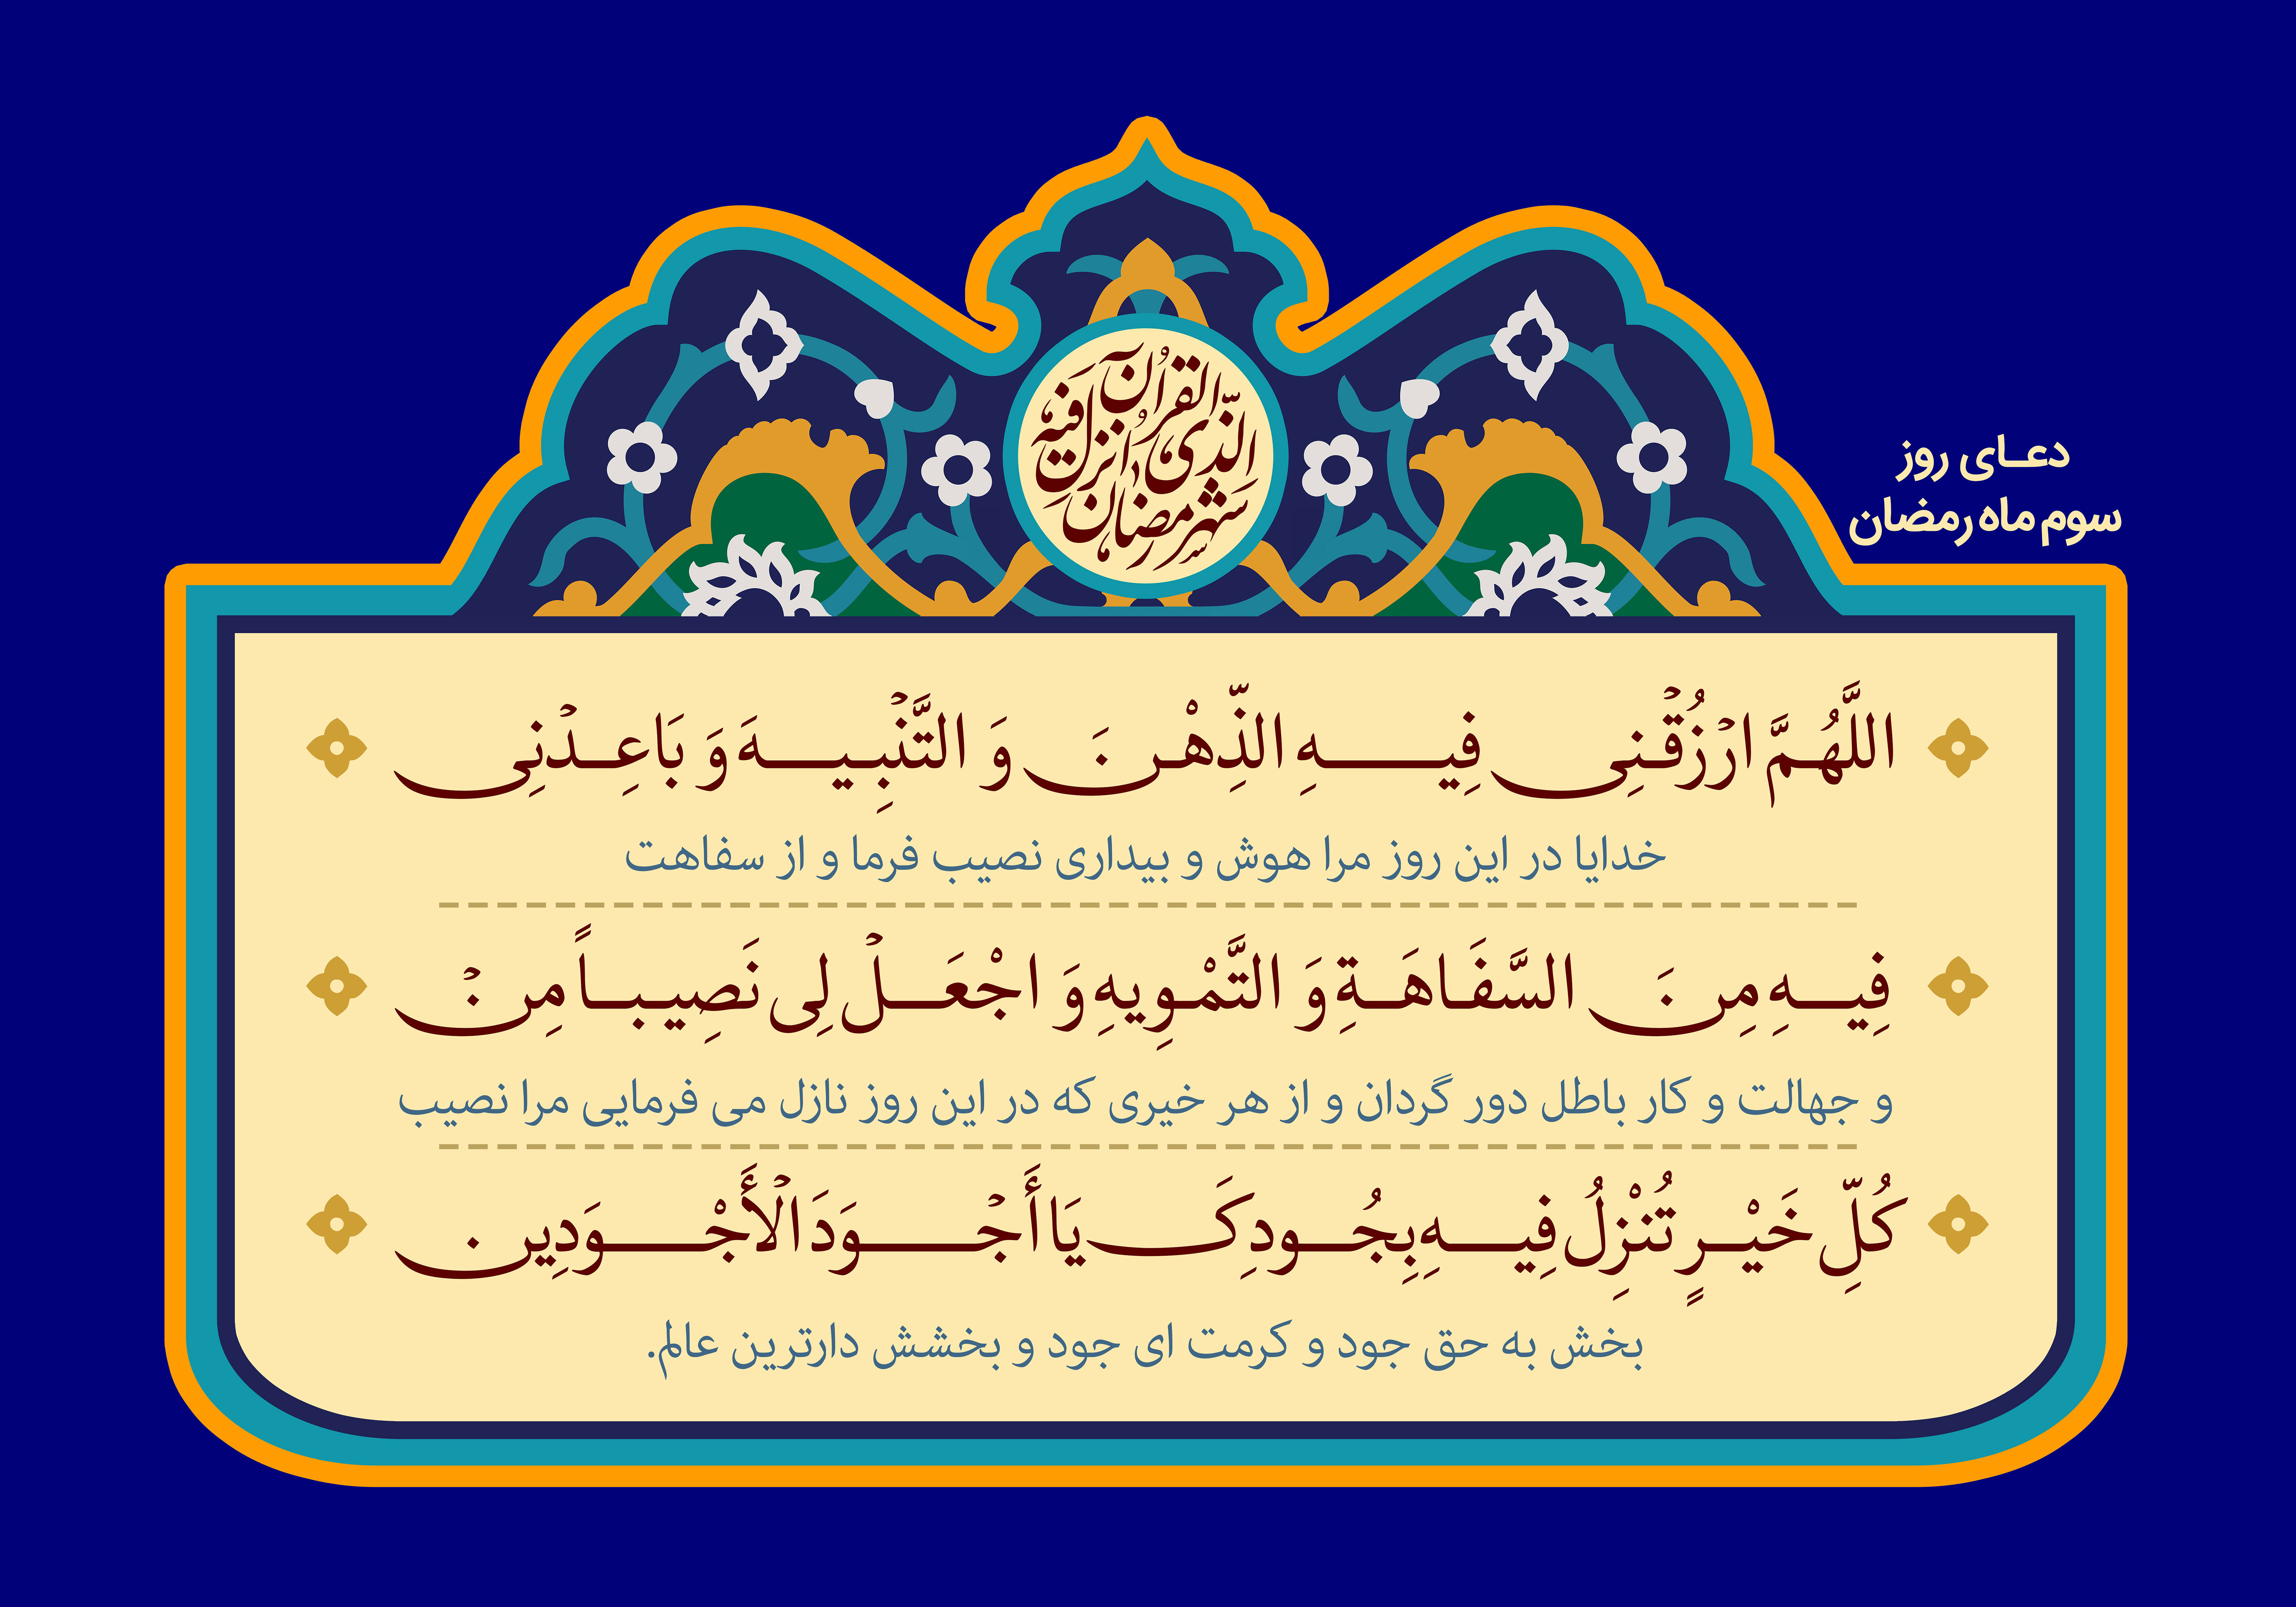 شهر رمضان الذی انزل فیه القرآن
دعای روز
سوم ماه رمضان
اللَّهُمَّ ارْزُقْنِی فِیهِ الذِّهْنَ وَ التَّنْبِیهَ وَ بَاعِدْنِی
خدایا در این روز مرا هوش و بیداری نصیب فرما و از سفاهت
فِیهِ مِنَ السَّفَاهَةِ وَ التَّمْوِیهِ وَ اجْعَلْ لِی نَصِیباً مِنْ
و جهالت و کار باطل دور گردان و از هر خیری که در این روز نازل می فرمایی مرا نصیب
كُلِّ خَیْرٍ تُنْزِلُ فِیهِ بِجُودِكَ یَا أَجْوَدَ الْأَجْوَدِین
بخش به حق جود و کرمت ای جود و بخشش دارترین عالم.